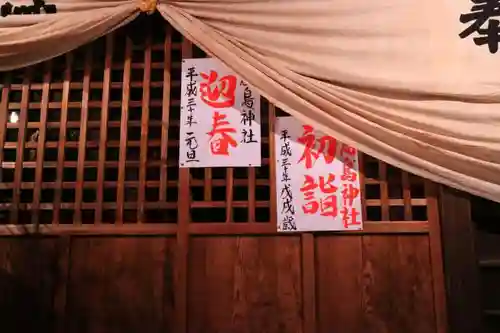 奉
島神社
初詣
平成三十年戊戌歳
島神社
迎春
平成三十年 元旦